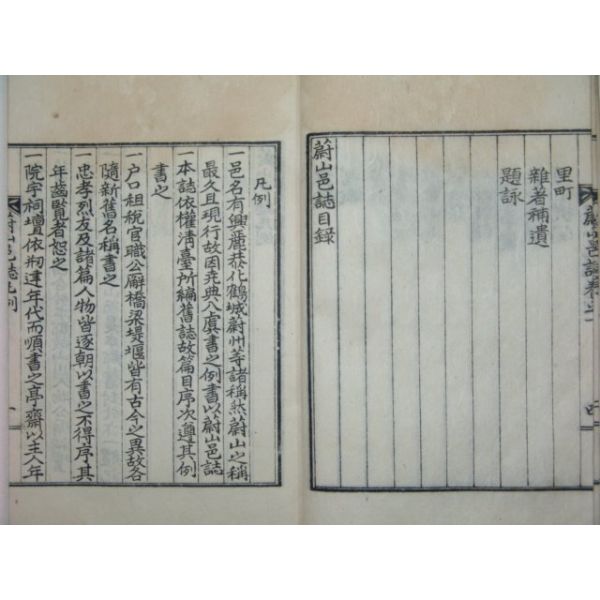 里町
雜著補遺
題詠
蔚山邑誌目錄
蔚山邑誌卷之一
凡例
一邑名有興麗恭化鶴城蔚州等諸稱然蔚山之稱
最久且現行故因堯典入虞書之例書以蔚山邑誌
一本誌依權淸臺所編舊誌故篇目序次遵其例
書之
一戶口租稅官職公廨橋梁堤堰皆有古今之異故各
隨新舊名稱書之
一忠孝烈友及諸篇人物皆逐朝以書之不得序其
年齒賢者恕之
一院宇祠壇依刱建年代而順書之亭齋以主人年
蔚山邑誌凡例
一